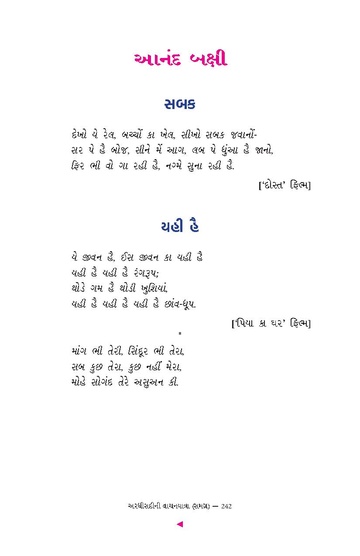 આનંદ બક્ષી
સબક
દેખો યે રેલ, બચ્ચોં કા ખેલ, સીખો સબક જવાનોં-
સર પે હૈ બોજ, સીને મેં આગ, લબ પે ધુંઆ હૈ જાનો,
ફિર ભી વો ગા રહી હૈ, નગ્મે સુના રહી હૈ.
['દોસ્ત' ફિલ્મ]
યહી હૈ
યે જીવન હૈ, ઈસ જીવન કા યહી હૈ
યહી હૈ યહી હૈ રંગરૂપ;
થોડે ગમ હૈ થોડી ખુશિયાં,
યહી હૈ યહી હૈ યહી હૈ છાંવ-ધૂપ.
['પિયા કા ઘર' ફિલ્મ]
*
માંગ ભી તેરી, સિંદૂર ભી તેરા,
સબ કુછ તેરા, કુછ નહીં મેરા,
મોહે સોગંદ તેરે અસુઅન કી.
અરધીસદીની વાચનયાત્રા (સમગ્ર) — 242